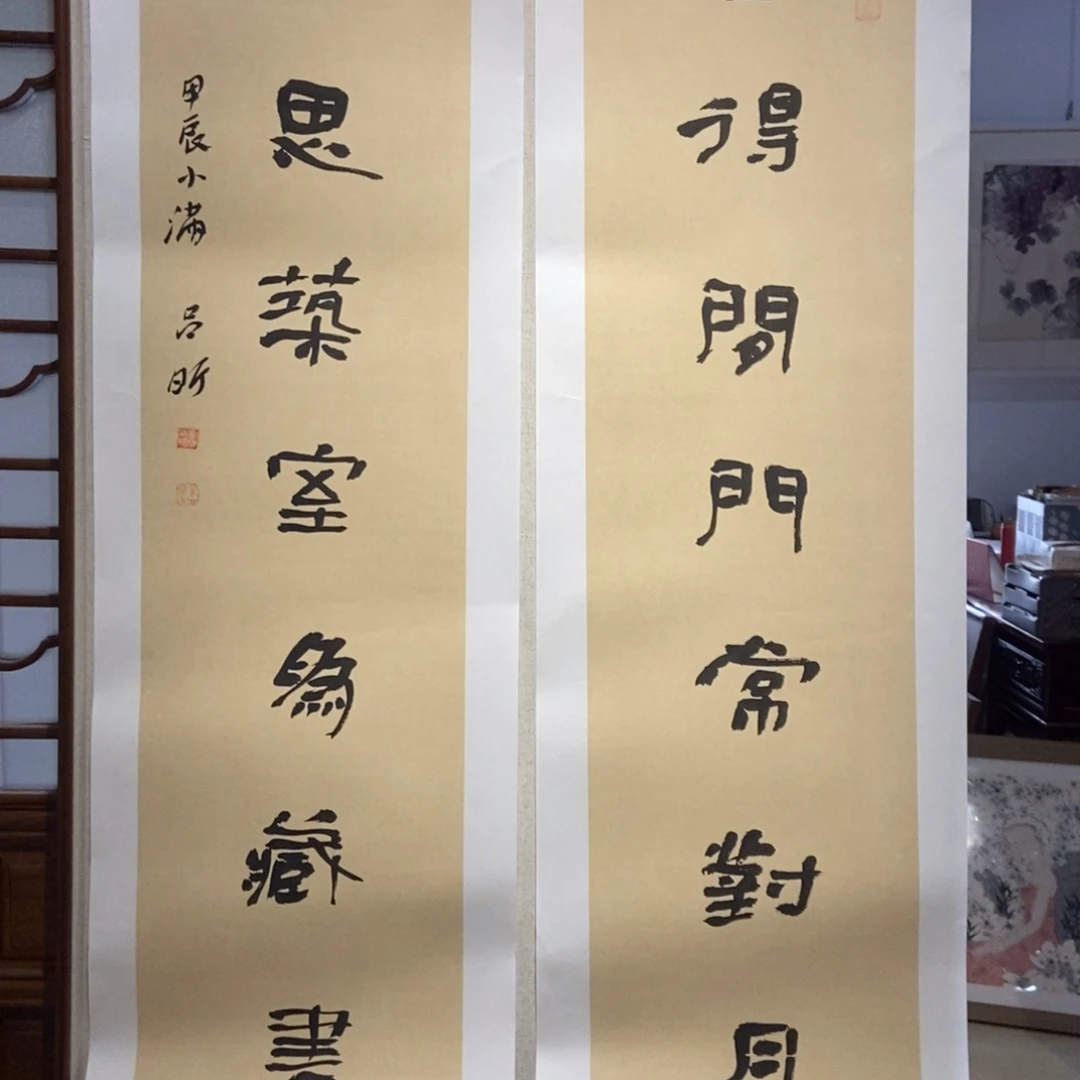 得閒門常對月
思築室爲藏書
甲辰小滿 吕昕